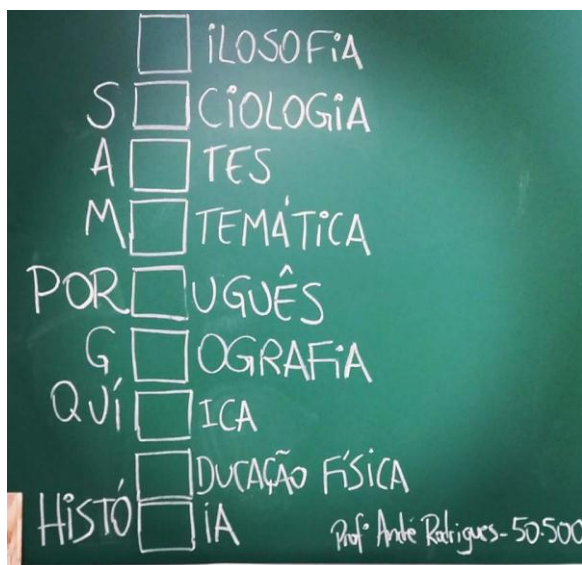 □ iLOSOFiA
S □ CiOLOGiA
A □ TES
M □ TEMÁTiCA
POR □ UGUÊS
G □ OGRAFiA
QUÍ □ ICA
□ DUCAÇÃO FÍSICA
HiSTÓ □ iA
Profº André Rodrigues - 50.500